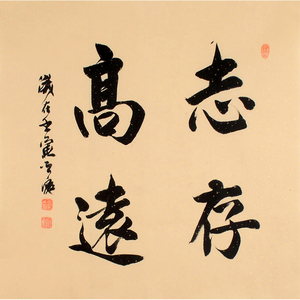 志存
高遠
歲在壬寅